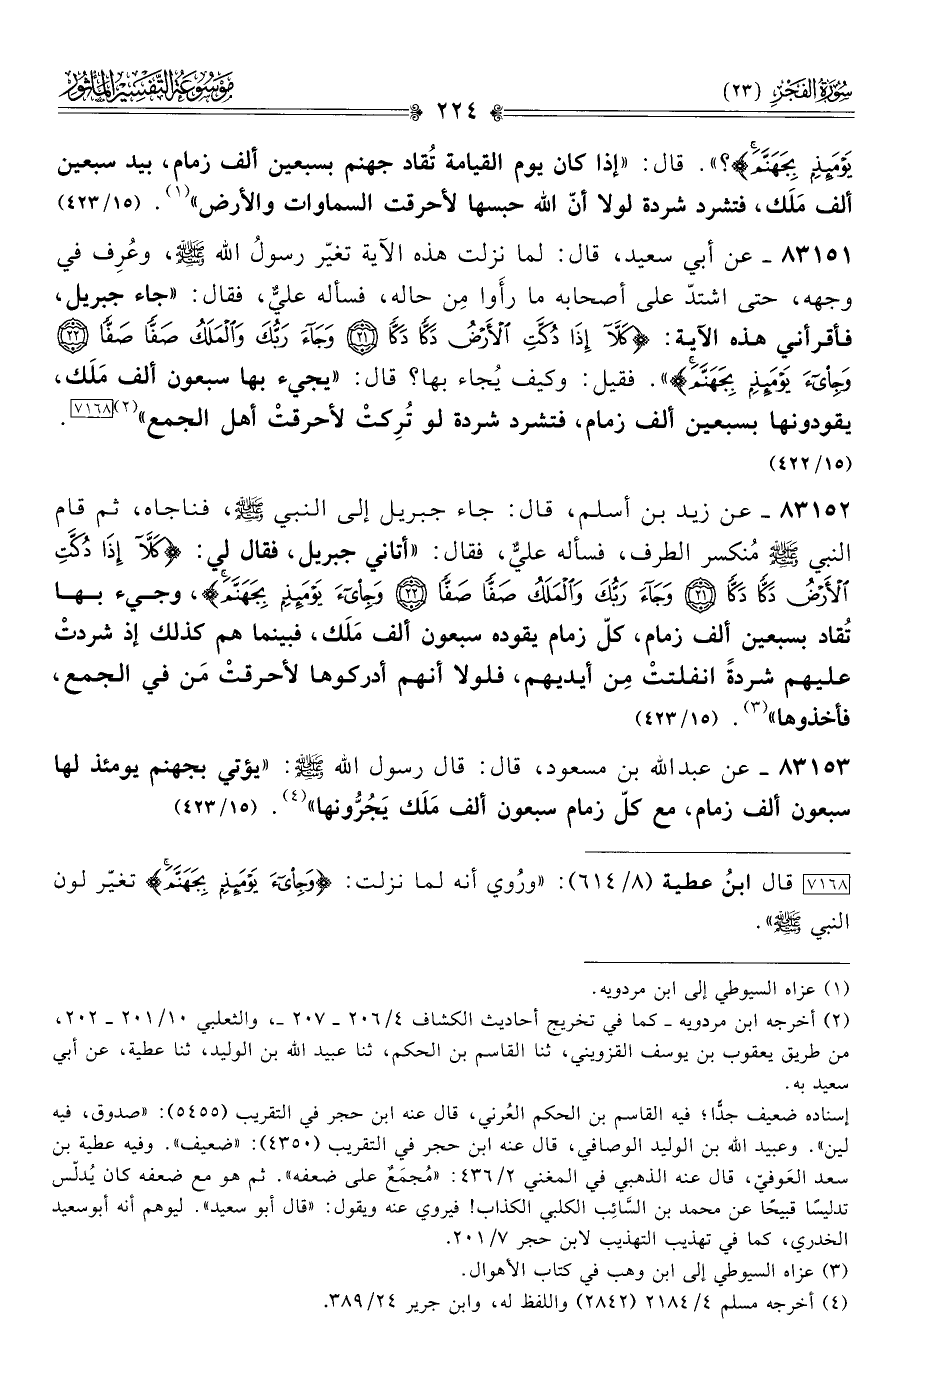 سُورَةُ الفَجْرِ (٢٣)
٢٢٤
مَوْسُوعَة التَّفْسِيرِ المَأْثُور
يَوْمَئِذٍ بِجَهَنَّمَ﴾؟». قال: «إذا كان يوم القيامة تُقاد جهنم بسبعين ألف زمام، بيد سبعين
ألف مَلَك، فتشرد شردة لولا أنّ الله حبسها لأحرقت السماوات والأرض»(١). (١٥/ ٤٢٣)
٨٣١٥١ ـ عن أبي سعيد، قال: لما نزلت هذه الآية تغيّر رسولُ الله ﷺ، وعُرِف في
وجهه، حتى اشتدّ على أصحابه ما رأَوا مِن حاله، فسأله عليٌّ، فقال: «جاء جبريل،
فأقرأني هذه الآية: ﴿كَلَّآ إِذَا دُكَّتِ ٱلْأَرْضُ دَكًّا دَكًّا ٢١ وَجَآءَ رَبُّكَ وَٱلْمَلَكُ صَفًّا صَفًّا ٢٢
وَجِا۟ىٓءَ يَوْمَئِذٍۭ بِجَهَنَّمَ﴾». فقيل: وكيف يُجاء بها؟ قال: «يجيء بها سبعون ألف مَلَك،
يقودونها بسبعين ألف زمام، فتشرد شردة لو تُرِكتْ لأحرقتْ أهل الجمع»(٢)[٧١٦٨].
(١٥/ ٤٢٢)
٨٣١٥٢ ـ عن زيد بن أسلم، قال: جاء جبريل إلى النبي ﷺ، فناجاه، ثم قام
النبي ﷺ مُنكسر الطرف، فسأله عليٌّ، فقال: «أتاني جبريل، فقال لي: ﴿كَلَّآ إِذَا دُكَّتِ
ٱلْأَرْضُ دَكًّا دَكًّا ٢١ وَجَآءَ رَبُّكَ وَٱلْمَلَكُ صَفًّا صَفًّا ٢٢ وَجِا۟ىٓءَ يَوْمَئِذٍۭ بِجَهَنَّمَ﴾، وجيء بها
تُقاد بسبعين ألف زمام، كلّ زمام يقوده سبعون ألف مَلَك، فبينما هم كذلك إذ شردتْ
عليهم شردةً انفلتتْ مِن أيديهم، فلولا أنهم أدركوها لأحرقتْ مَن في الجمع،
فأخذوها»(٣). (١٥/ ٤٢٣)
٨٣١٥٣ ـ عن عبدالله بن مسعود، قال: قال رسول الله ﷺ: «يؤتي بجهنم يومئذ لها
سبعون ألف زمام، مع كلّ زمام سبعون ألف مَلَك يَجُرُّونها»(٤). (١٥/ ٤٢٣)
[٧١٦٨] قال ابنُ عطية (٨/ ٦١٤): «ورُوي أنه لما نزلت: ﴿وَجِا۟ىٓءَ يَوْمَئِذٍۭ بِجَهَنَّمَ﴾ تغيّر لون
النبي ﷺ».
(١) عزاه السيوطي إلى ابن مردويه.
(٢) أخرجه ابن مردويه ـ كما في تخريج أحاديث الكشاف ٤/ ٢٠٦ ـ ٢٠٧ ـ، والثعلبي ١٠/ ٢٠١ ـ ٢٠٢،
من طريق يعقوب بن يوسف القزويني، ثنا القاسم بن الحكم، ثنا عبيد الله بن الوليد، ثنا عطية، عن أبي
سعيد به.
إسناده ضعيف جدًّا؛ فيه القاسم بن الحكم العُرني، قال عنه ابن حجر في التقريب (٥٤٥٥): «صدوق، فيه
لين». وعبيد الله بن الوليد الوصافي، قال عنه ابن حجر في التقريب (٤٣٥٠): «ضعيف». وفيه عطية بن
سعد العَوفيّ، قال عنه الذهبي في المغني ٢/ ٤٣٦: «مُجمَعٌ على ضعفه». ثم هو مع ضعفه كان يُدلّس
تدليسًا قبيحًا عن محمد بن السَّائِب الكلبي الكذاب! فيروي عنه ويقول: «قال أبو سعيد». ليوهم أنه أبوسعيد
الخدري، كما في تهذيب التهذيب لابن حجر ٧/ ٢٠١.
(٣) عزاه السيوطي إلى ابن وهب في كتاب الأهوال.
(٤) أخرجه مسلم ٤/ ٢١٨٤ (٢٨٤٢) واللفظ له، وابن جرير ٢٤/ ٣٨٩.